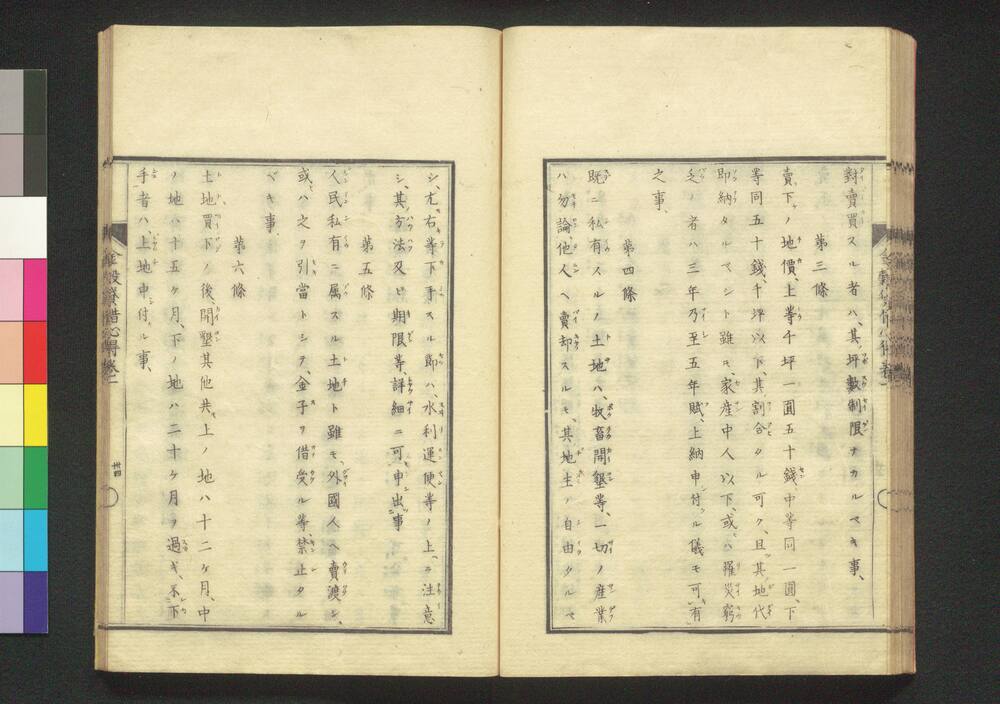 對賣買スル者ハ、其坪數制限ナカルベキ事、
第三條
賣下ノ地價、上等千坪一圓五十錢中等同一圓、下
等同五十錢、千坪以下、其割合タル可ク、且其地代
即納タルベシト雖モ、家産中人以下、或ハ罹災窮
乏ノ者ハ三年乃至五年賦、上納申付ル儀モ可有
之事、
第四條
既ニ私有スルノ土地ハ、牧畜開墾等、一切ノ産業
ハ勿論、他人ヘ賣却スルモ、其地主ノ自由タルベ
シ、尤右等下手スル節ハ、水利運便等ノ上ヲ注意
シ、其方法及ビ期限等、詳細ニ可申出事
第五條
人民私有ニ属スル土地ト雖モ、外國人ヘ賣渡シ、
或ハ之ヲ引當トシテ、金子ヲ借受ル等、禁止タル
ベキ事、
第六條
土地買下ノ後、開墾其他共、上ノ地ハ十二ケ月、中
ノ地ハ十五ケ月、下ノ地ハ二十ケ月ヲ過ギ、不下
手者ハ、上地申付ル事、
金穀貸借心得卷一
卅四